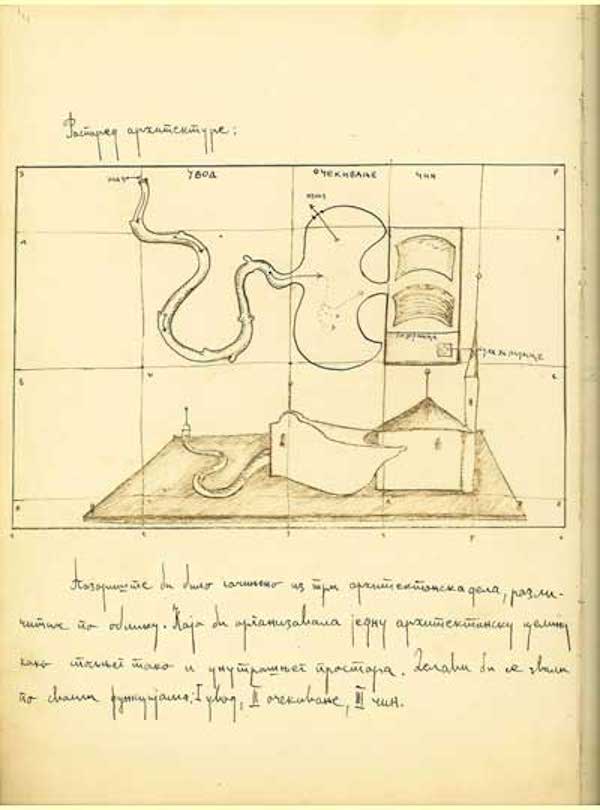 Распоред архитектуре:
улаз
УВОД
ОЧЕКИВАЊЕ
ЧИН
излаз
Позориште би било сачињено из три архитектонска дела, разли-
читих по облику. Која би организовала једну архитектонску целину
како спољнег тако и унутрашњег простора. Делови би се звали
по својим функцијама; I увод, II очекивање, III чин.